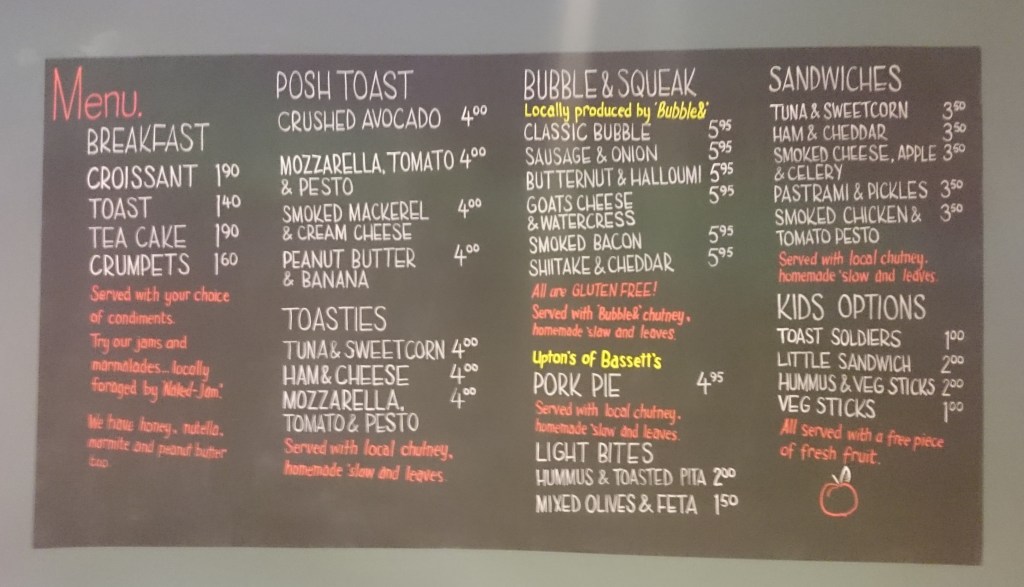 Menu.
BREAKFAST
CROISSANT 1.90
TOAST 1.40
TEA CAKE 1.90
CRUMPETS 1.60
Served with your choice
of condiments.
Try our jams and
marmalades... locally
foraged by 'Naked-Jam'.
We have honey, nutella,
marmite and peanut butter
too.
POSH TOAST
CRUSHED AVOCADO 4.00
MOZZARELLA, TOMATO 4.00
& PESTO
SMOKED MACKEREL 4.00
& CREAM CHEESE
PEANUT BUTTER 4.00
& BANANA
TOASTIES
TUNA & SWEETCORN 4.00
HAM & CHEESE 4.00
MOZZARELLA, 4.00
TOMATO & PESTO
Served with local chutney,
homemade 'slaw and leaves.
BUBBLE & SQUEAK
Locally produced by 'Bubble&'
CLASSIC BUBBLE 5.95
SAUSAGE & ONION 5.95
BUTTERNUT & HALLOUMI 5.95
GOATS CHEESE 5.95
& WATERCRESS
SMOKED BACON 5.95
SHIITAKE & CHEDDAR 5.95
All are GLUTEN FREE!
Served with 'Bubble&' chutney,
homemade 'slaw and leaves.
Upton's of Bassett's
PORK PIE 4.95
Served with local chutney,
homemade 'slaw and leaves.
LIGHT BITES
HUMMUS & TOASTED PITA 2.00
MIXED OLIVES & FETA 1.50
SANDWICHES
TUNA & SWEETCORN 3.50
HAM & CHEDDAR 3.50
SMOKED CHEESE, APPLE 3.50
& CELERY
PASTRAMI & PICKLES 3.50
SMOKED CHICKEN & 3.50
TOMATO PESTO
Served with local chutney,
homemade 'slaw and leaves.
KIDS OPTIONS
TOAST SOLDIERS 1.00
LITTLE SANDWICH 2.00
HUMMUS & VEG STICKS 2.00
VEG STICKS 1.00
All served with a free piece
of fresh fruit.